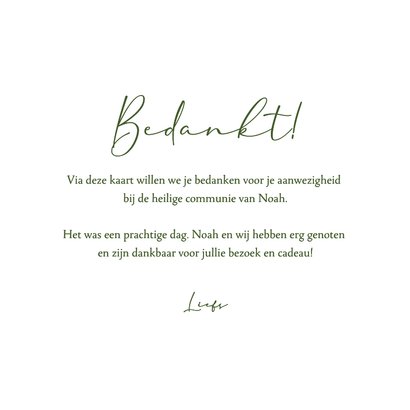 Bedankt!
Via deze kaart willen we je bedanken voor je aanwezigheid
bij de heilige communie van Noah.
Het was een prachtige dag. Noah en wij hebben erg genoten
en zijn dankbaar voor jullie bezoek en cadeau!
Liefs